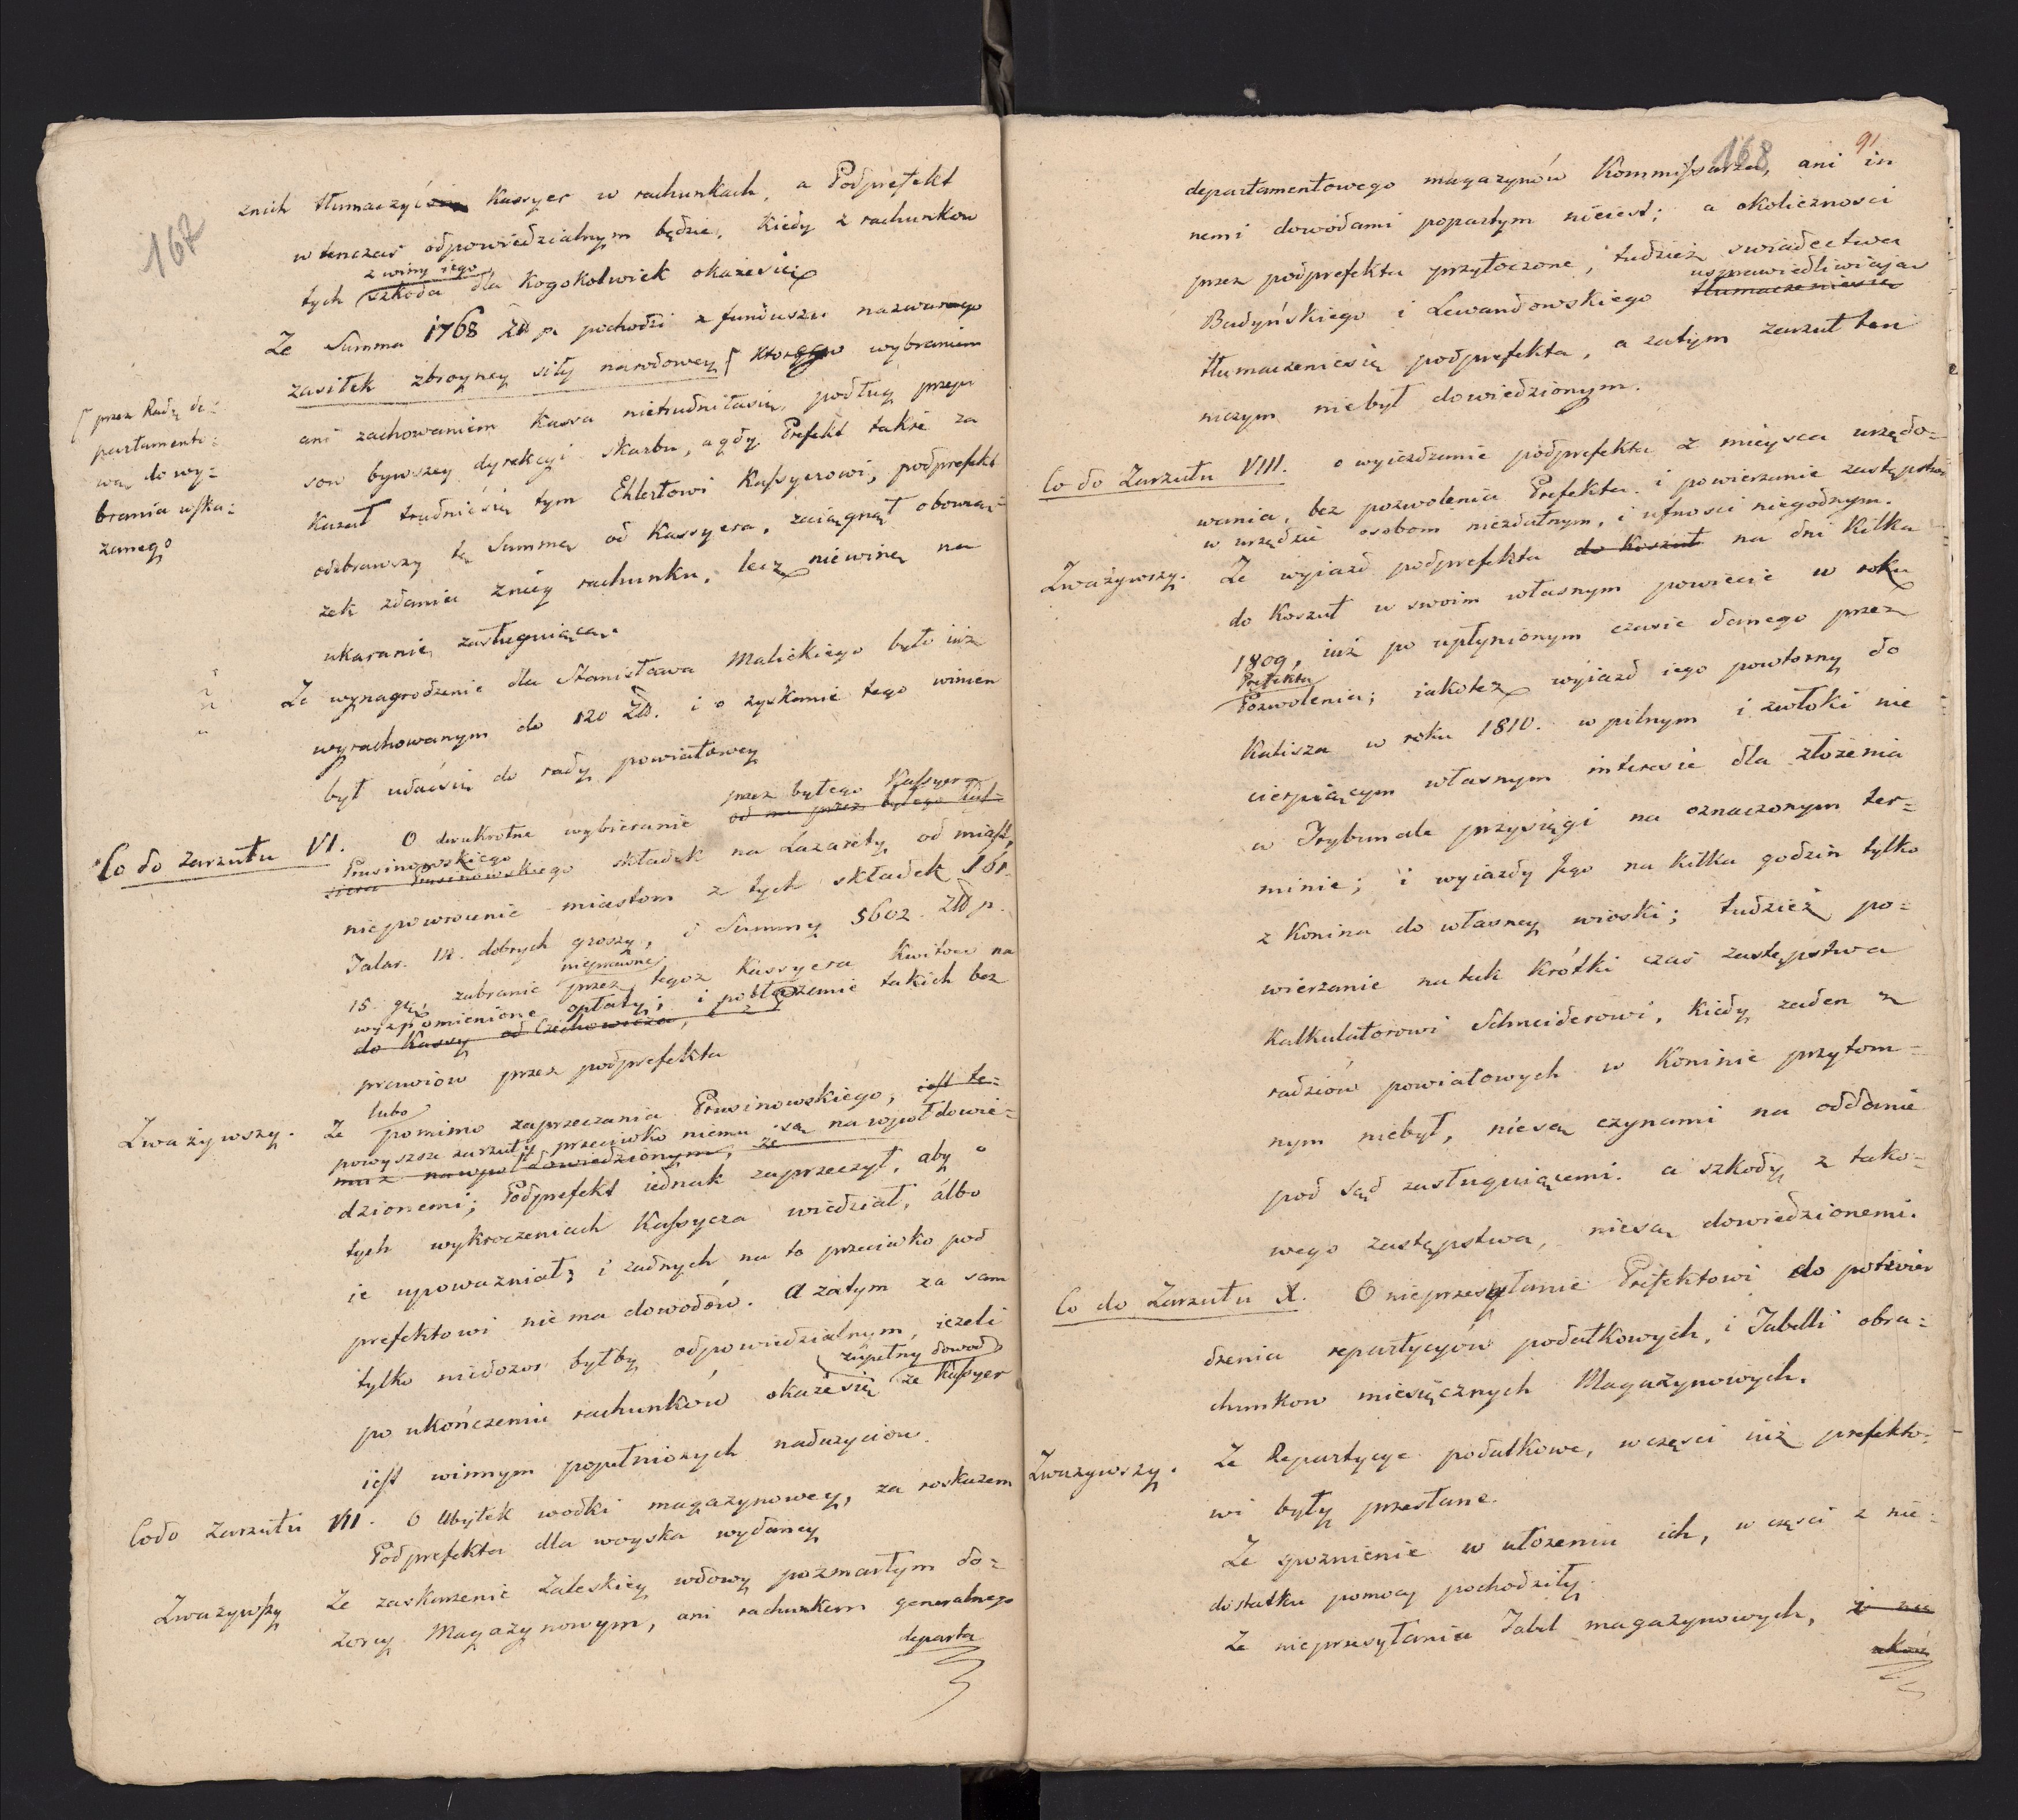 167
znich tłumaczyć się Kassyer w rachunkach, a Podprefekt
wtenczas odpowiedzialnym będzie, kiedy z rachunkow
z winy iego
tych szkoda dla kogokolwiek okażesię
Ze Summa 1768 Zł p. pochodzi z funduszu nazwanego
zasiłek zbroyney siły narodowey [ ktorego wybraniem
[ przez Radę de=
partamento=
wą do wy=
brania wska=
zanego
ani zachowaniem Kassa nietrudniłasię, podług przepi
sow bywszey dyrekcyi skarbu, a gdy Prefekt także za
kazał trudnićsię tym Ehlertowi Kassyerowi, podprefekt
odebrawszy tę Summę od Kassyera, zaiągnął obowią=
zek zdania zniey rachunku, lecz niewinę na
ukaranie zasługuiącą.
Ze wynagrodzenie dla Stanisława Malickiego było iuż
wyrachowanym do 120 Zł. i o zyskanie tego winien
był udaćsię do rady powiatowey
przez byłego Kassyera
Co do zarzutu VI. O dwukrotne wybieranie od m przez byłego Kas=
Prusinowskiego
siera Prusinowskiego składek na Lazarety od miast,
niepowrocenie miastom z tych składek 161
Talar. 12. dobrych groszy, i Summy 5602. Złp.
nieprawne
15 gr, zabranie przez tegoż Kassyera kwitow na
wyzpomienione opłaty; i pobłażenie takich bez
do Kassy od Czichowicza,
prawiow przez podprefekta
lubo
Zważywszy. Ze pomimo zaprzeczania Prusinowskiego, iest te=
powyzsze zarzuty przeciwko niemu są na wpoł dowie=
muż nawpoł dowiedzionym, ze
dzionemi; Podprefekt iednak zaprzeczył, aby o
tych wykroczeniach Kassyera wiedział, albo
ie upoważniał; i żadnych na to przeciwko pod
prefektowi nie ma dowodów. A zatym za sam
tylko niedozor byłby odpowiedzialnym, ieżeli
zupełny dowod
po ukończeniu rachunków okażesię ze Kassyer
iest winnym popełnionych nadużyciow.
Codo Zarzutu VII. O Ubytek wodki magazynowey, za roskazem
Podprefekta dla woyska wydaney
Zważywszy Ze zaskarzenie Zaleskiey wdowy pozmarłym do=
zorcy Magazynowym, ani rachunkem generalnego
departa
168 91
departamentowego magazynów Kommissarza, ani in
nemi dowodami popartym nieiest; a okoliczności
przez podprefekta przytoczone, tudzież swiadectwa
usprawiedliwiaią
Budyńskiego i Lewandowskiego tłumaczeniesię
tłumaczeniesię podprefekta, a zatym zarzut ten
niczym niebył dowiedzionym.
Co do Zarzutu VIII. o wyieżdzanie podprefekta z mieysca urzędo=
wania, bez pozwolenia Prefekta i powierzanie zastępstwa
w urzędzie osobom niezdatnym, i ufności niegodnym.
Zważywszy. Ze wyiazd podprefekta do Koszut na dni kilka
do Koszut w swoim własnym powiecie w roku
1809, iuż po upłynionym czasie danego przez
Prefekta
Pozwolenia; iakoteż wyiazd iego powtorny do
Kalisza w roku 1810. w pilnym i zwłoki nie
cierpiącym własnym interesie dla złożenia
w Trybunale przysięgi na oznaczonym ter=
minie; i wyiazdy Jego na kilka godzin tylko
z Konina do własney wioski; tudzież po=
wierzanie na tak krótki czas zastępstwa
Kalkulatorowi Schneiderowi, kiedy żaden z
radziów powiatowych w Koninie przytom=
nym niebył, niesą czynami na oddanie
pod sąd zasługuiącemi. a szkody z tako=
wego zastępstwa, niesą dowiedzionemi.
Co do Zarzutu X. O nieprzesyłanie Prefektowi do potwier
dzenia repartycyów podatkowych, i Tabelli obra=
chunkow miesięcznych Magazynowych.
Zważywszy. Ze Repartycye podatkowe, wczęści iuż prefekto=
wi były przesłane.
Ze spoznienie w ułożeniu ich, w części z nie=
dostatku pomocy pochodziły.
Ze nieprzesyłania Tabel magazynowych, z nie
ukoń